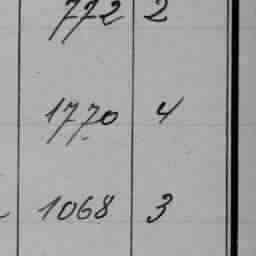 772 2
1770 4
1068 3